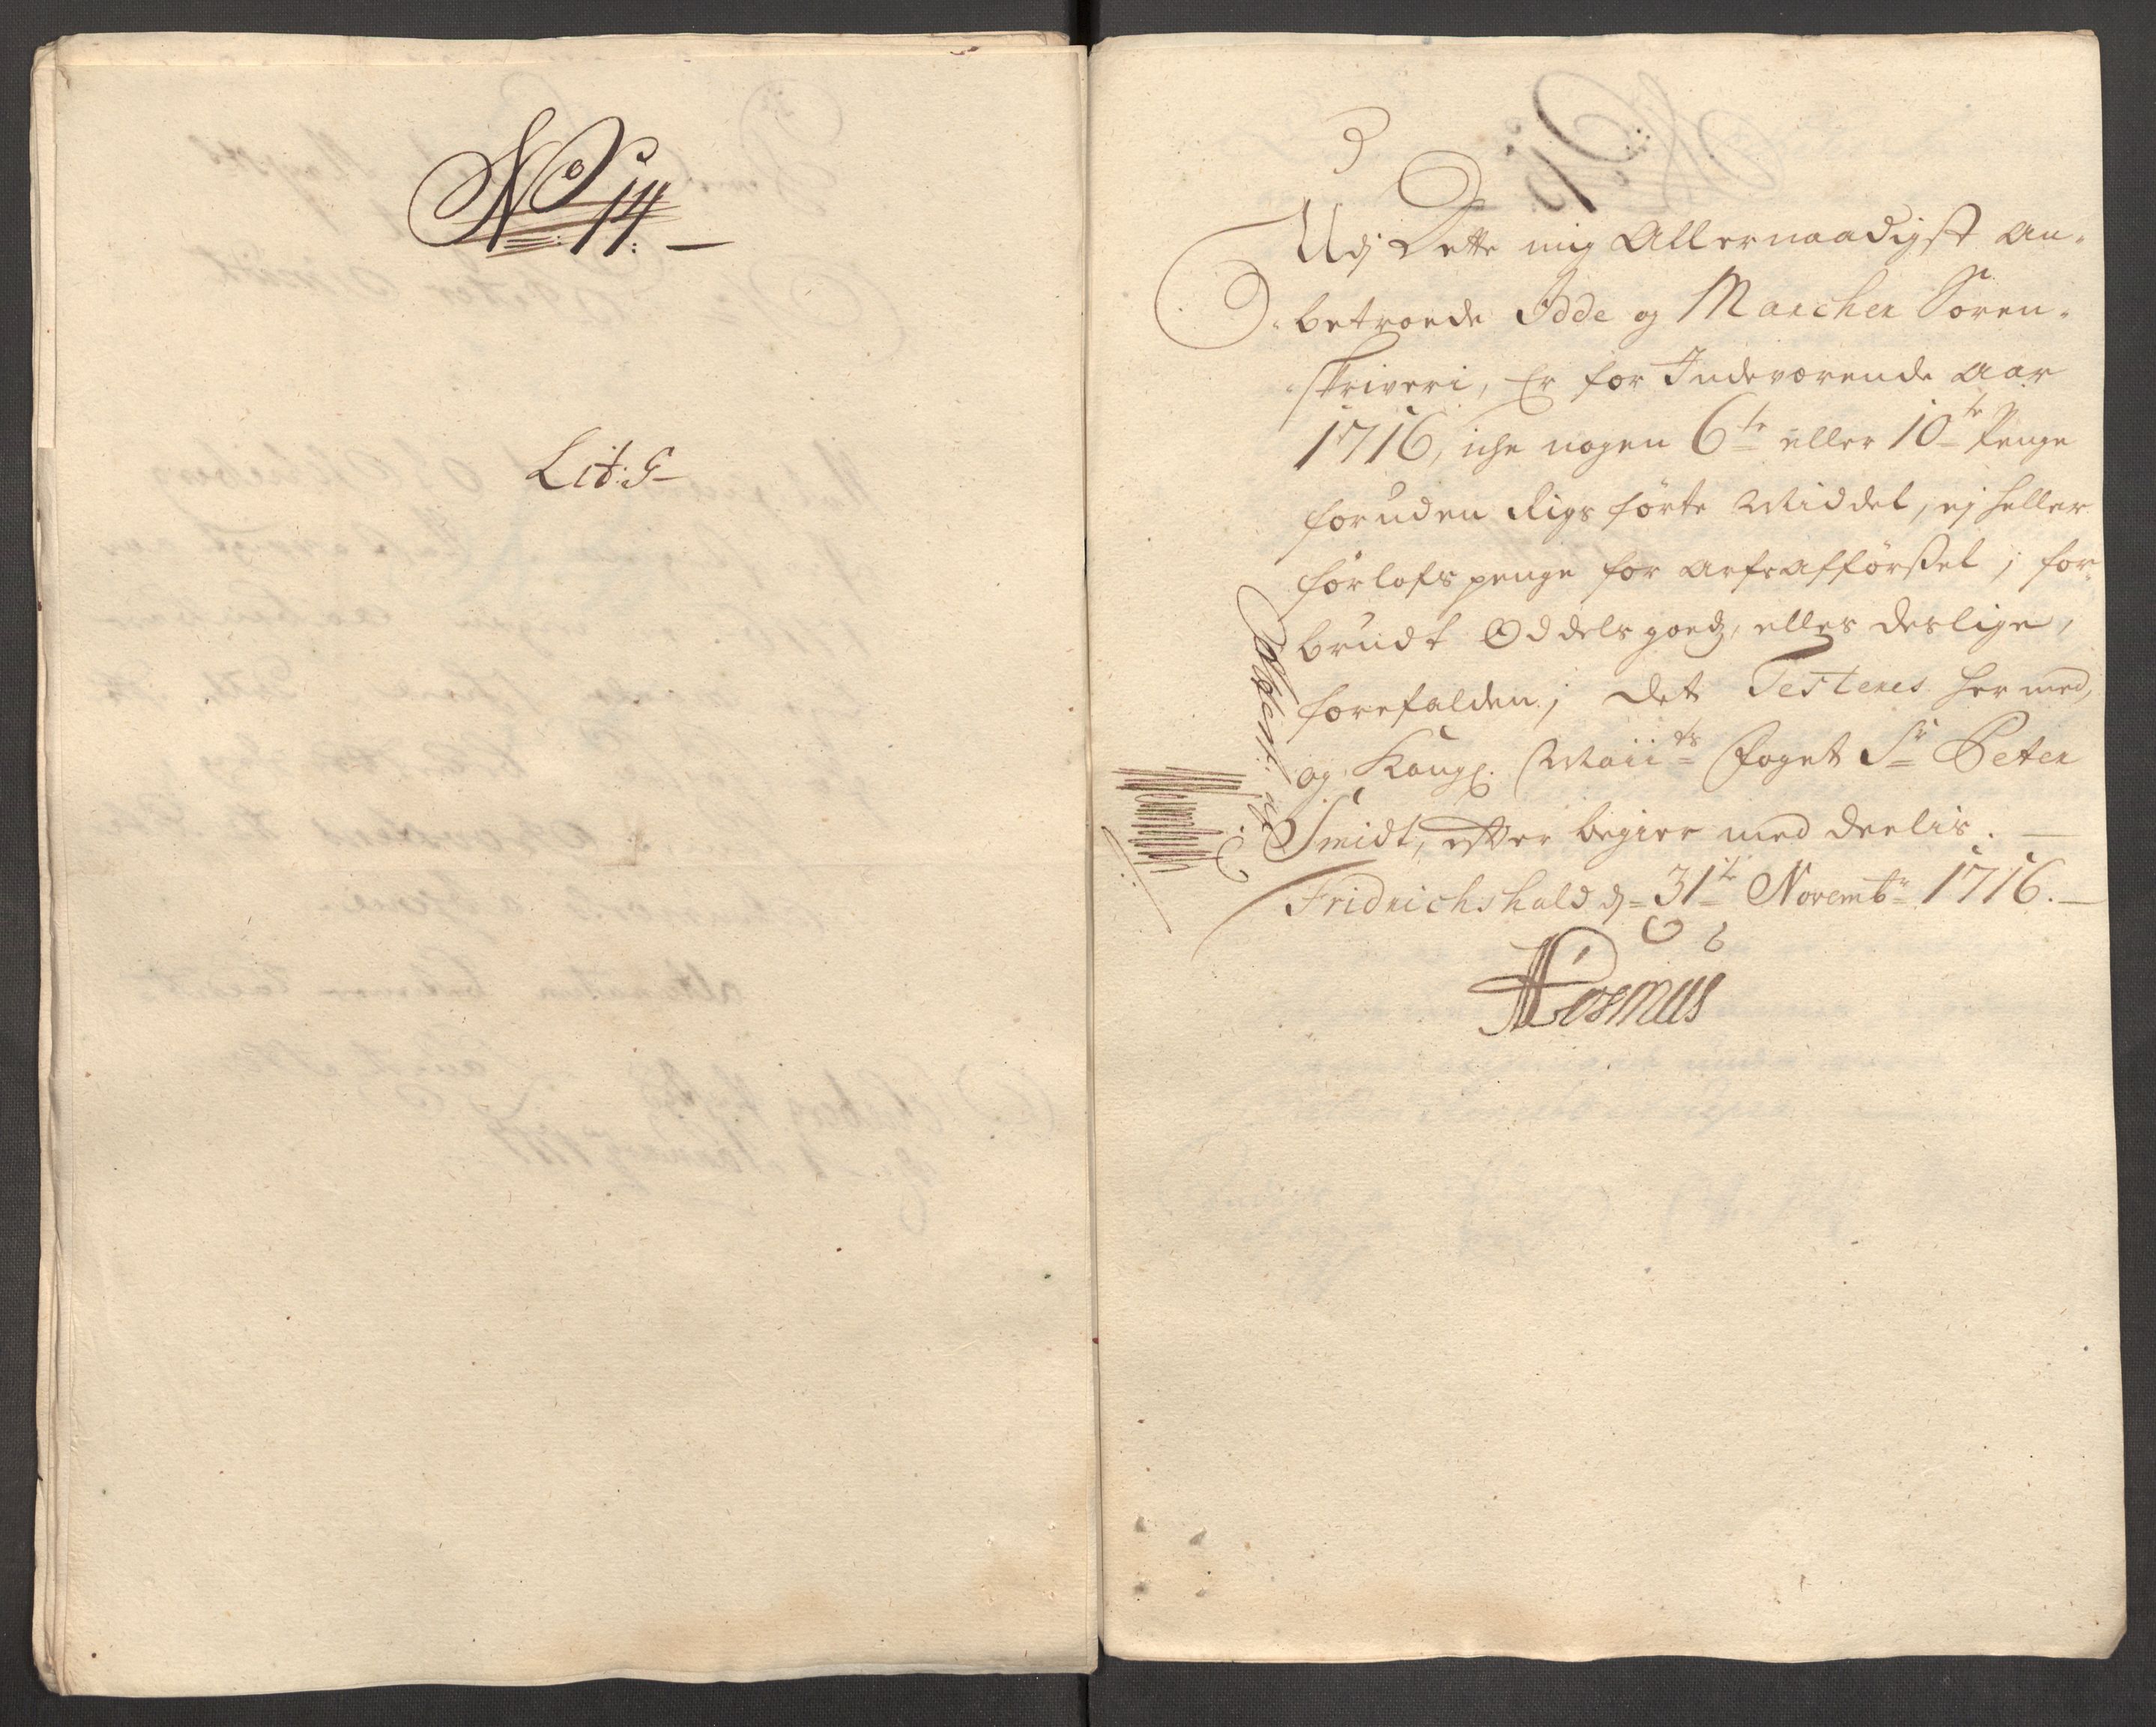 No 14.
Lit: G
Udj Dette mig Allernaadigst an-
betroede Idde og Marcher Soren-
skriveri, Er for Indeværende Aar
1716, iche nogen 6te eller 10te Penge
foruden Rigs förte Middel, ej heller
forlofs penge for arfs afförssel, for
brudt Oddels goedz, eller deslige,
forefalden; det Testeres her med,
og Kongl. Maiits Foget Sr Peter
Smidt, efter begier med deelis.
Fridrichshald d 31te Novembr 1716.